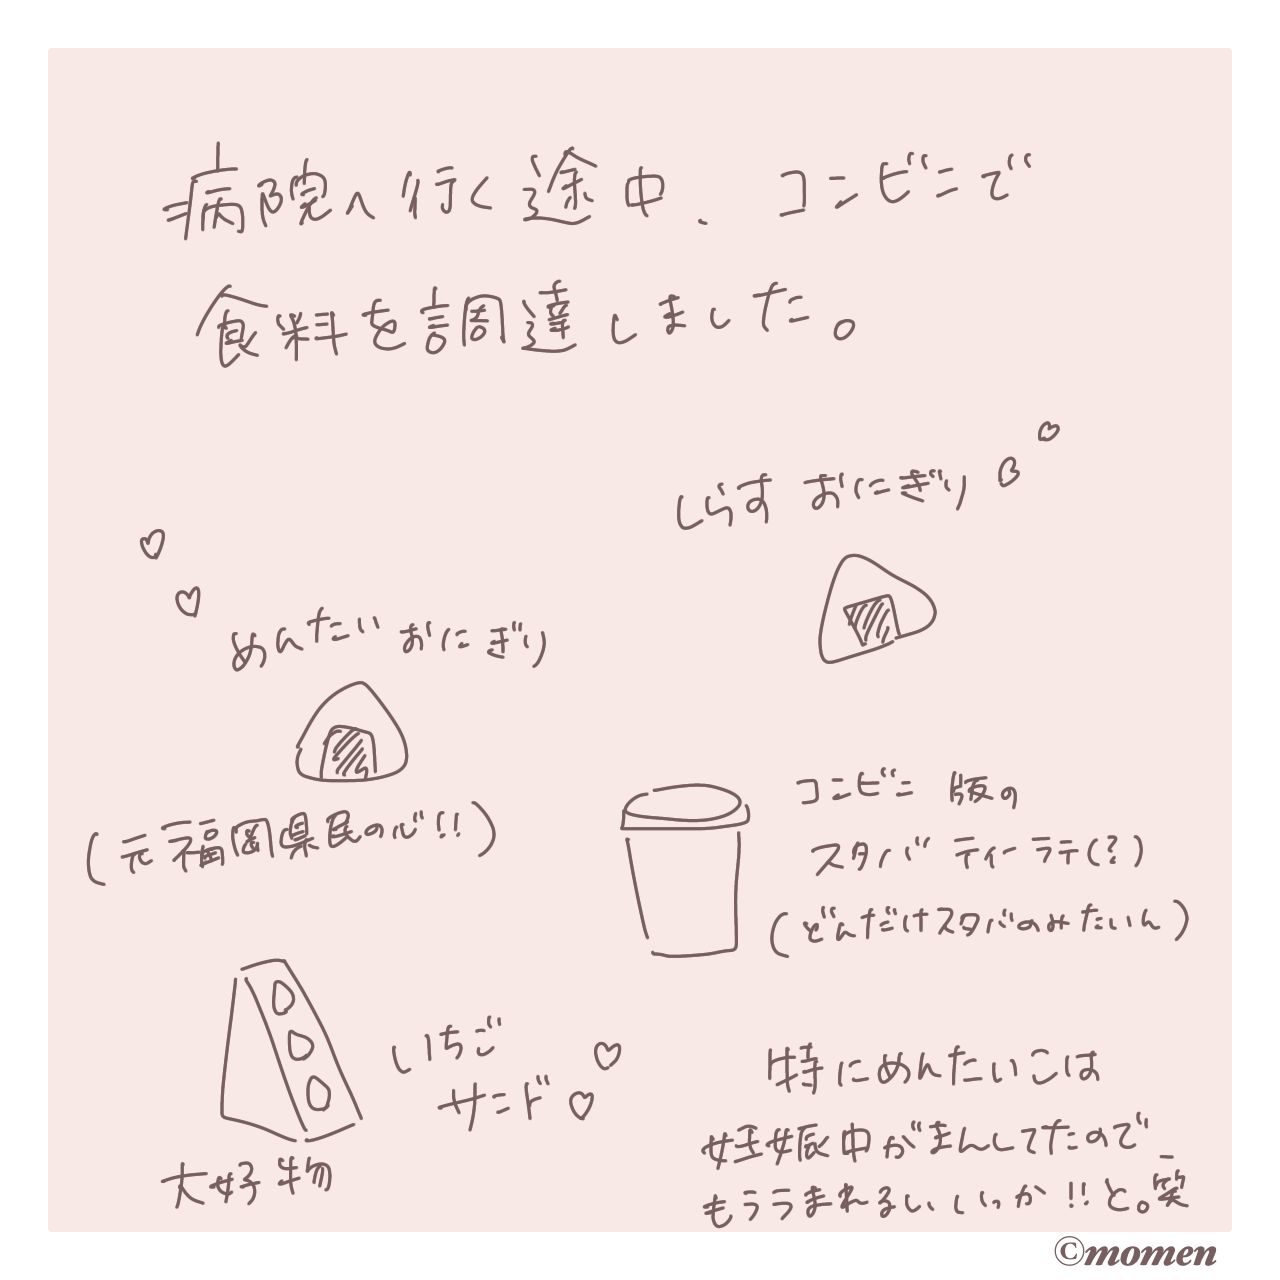 病院へ行く途中、コンビニで
食料を調達しました。
しらす おにぎり
めんたい おにぎり
(元福岡県民の心!!)
コンビニ版の
スタバ ティーラテ(?)
(どんだけスタバのみたいん)
いちご
サンド
大好物
特にめんたいこは
妊娠中がまんしてたので
もううまれるしいいっか!!と。笑
©momen